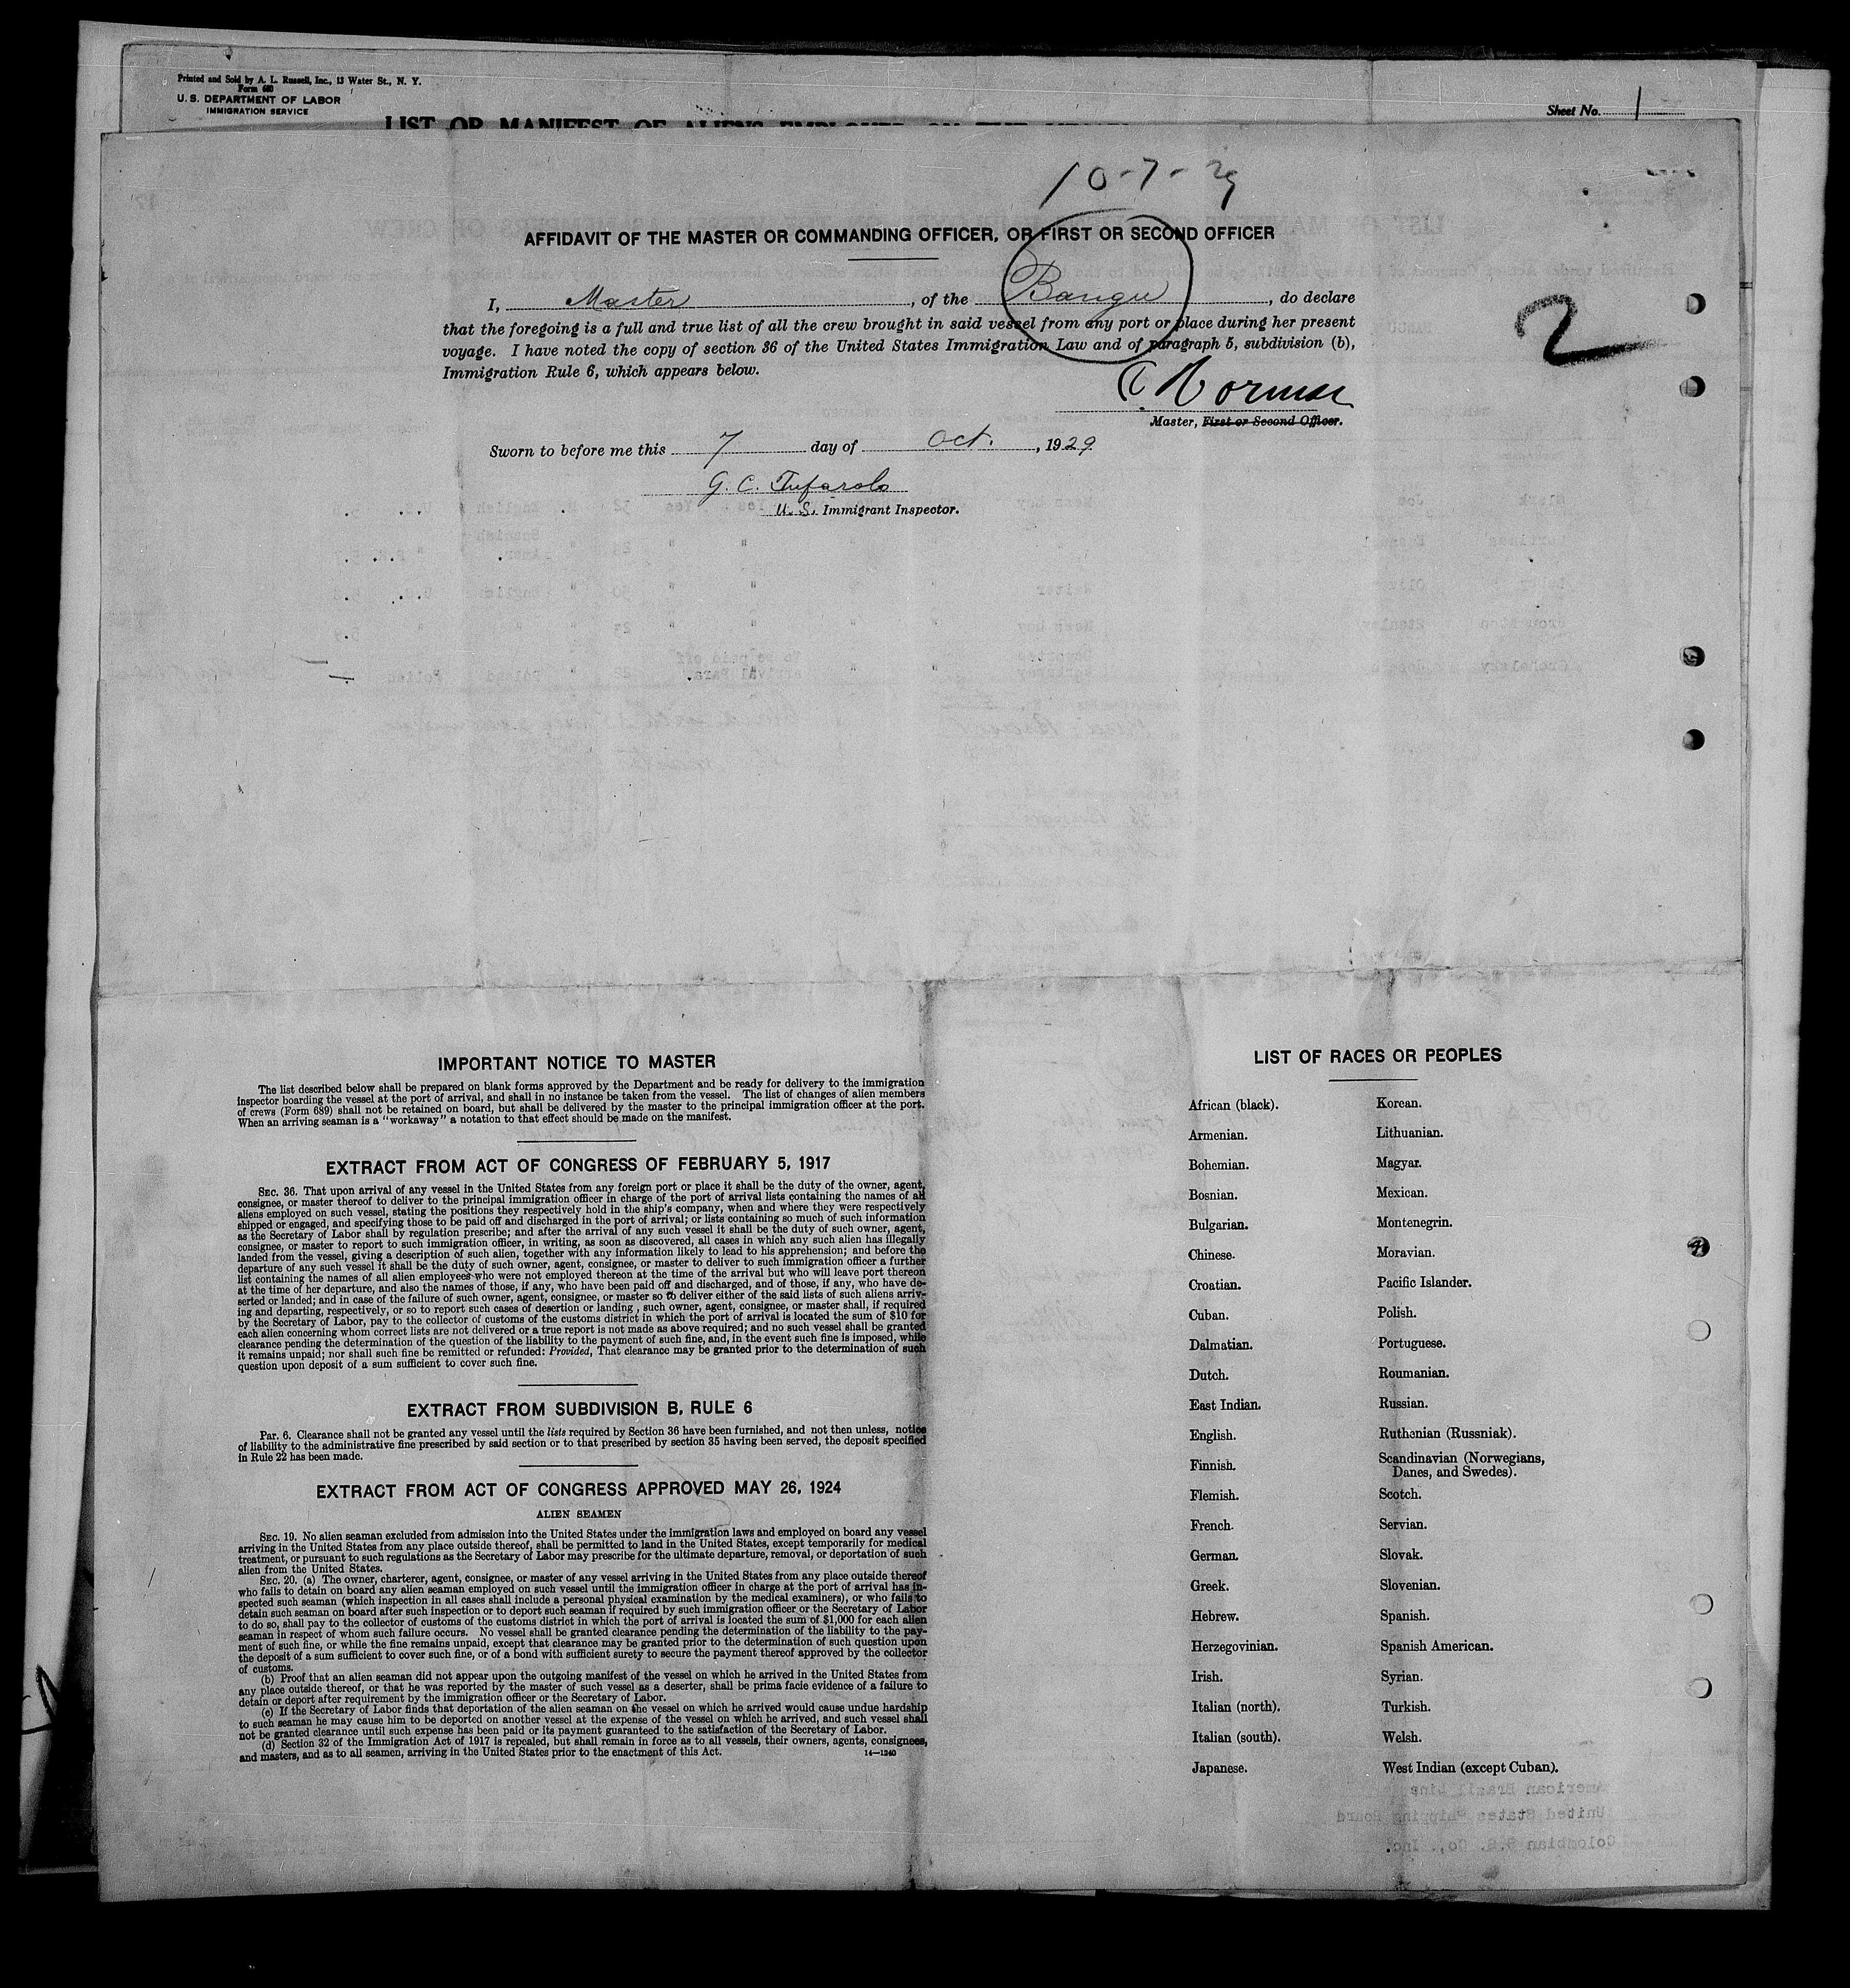 Printed and Sold by A. L. Russell, Inc., 13 Water St., N. Y.
Form 680
U. S. DEPARTMENT OF LABOR
IMMIGRATION SERVICE
Sheet No. 1
10-7-29
AFFIDAVIT OF THE MASTER OR COMMANDING OFFICER, OR FIRST OR SECOND OFFICER
I, Master, of the Bangu, do declare
that the foregoing is a full and true list of all the crew brought in said vessel from any port or place during her present
voyage. I have noted the copy of section 36 of the United States Immigration Law and of paragraph 5, subdivision (b),
Immigration Rule 6, which appears below.
2
Master, First or Second Officer.
Sworn to before me this 7 day of Oct., 1929
G. C. Tufarolo
U. S. Immigrant Inspector.
IMPORTANT NOTICE TO MASTER
The list described below shall be prepared on blank forms approved by the Department and be ready for delivery to the immigration
inspector boarding the vessel at the port of arrival, and shall in no instance be taken from the vessel. The list of changes of alien members
of crews (Form 689) shall not be retained on board, but shall be delivered by the master to the principal immigration officer at the port.
When an arriving seaman is a "workaway" a notation to that effect should be made on the manifest.
EXTRACT FROM ACT OF CONGRESS OF FEBRUARY 5, 1917
SEC. 36. That upon arrival of any vessel in the United States from any foreign port or place it shall be the duty of the owner, agent,
consignee, or master thereof to deliver to the principal immigration officer in charge of the port of arrival lists containing the names of all
aliens employed on such vessel, stating the positions they respectively hold in the ship's company, when and where they were respectively
shipped or engaged, and specifying those to be paid off and discharged in the port of arrival; or lists containing so much of such information
as the Secretary of Labor shall by regulation prescribe; and after the arrival of any such vessel it shall be the duty of such owner, agent,
consignee, or master to report to such immigration officer, in writing, as soon as discovered, all cases in which any such alien has illegally
landed from the vessel, giving a description of such alien, together with any information likely to lead to his apprehension; and before the
departure of any such vessel it shall be the duty of such owner, agent, consignee, or master to deliver to such immigration officer a further
list containing the names of all alien employees who were not employed thereon at the time of the arrival but who will leave port thereon
at the time of her departure, and also the names of those, if any, who have been paid off and discharged, and of those, if any, who have de-
serted or landed; and in case of the failure of such owner, agent, consignee, or master so to deliver either of the said lists of such aliens arriv-
ing and departing, respectively, or so to report such cases of desertion or landing, such owner, agent, consignee, or master shall, if required
by the Secretary of Labor, pay to the collector of customs of the customs district in which the port of arrival is located the sum of $10 for
each alien concerning whom correct lists are not delivered or a true report is not made as above required; and no such vessel shall be granted
clearance pending the determination of the question of the liability to the payment of such fine, and, in the event such fine is imposed, while
it remains unpaid; nor shall such fine be remitted or refunded: Provided, That clearance may be granted prior to the determination of such
question upon deposit of a sum sufficient to cover such fine.
EXTRACT FROM SUBDIVISION B, RULE 6
Par. 6. Clearance shall not be granted any vessel until the lists required by Section 36 have been furnished, and not then unless, notice
of liability to the administrative fine prescribed by said section or to that prescribed by section 35 having been served, the deposit specified
in Rule 22 has been made.
EXTRACT FROM ACT OF CONGRESS APPROVED MAY 26, 1924
ALIEN SEAMEN
SEC. 19. No alien seaman excluded from admission into the United States under the immigration laws and employed on board any vessel
arriving in the United States from any place outside thereof, shall be permitted to land in the United States, except temporarily for medical
treatment, or pursuant to such regulations as the Secretary of Labor may prescribe for the ultimate departure, removal, or deportation of such
alien from the United States.
SEC. 20. (a) The owner, charterer, agent, consignee, or master of any vessel arriving in the United States from any place outside thereof
who fails to detain on board any alien seaman employed on such vessel until the immigration officer in charge at the port of arrival has in-
spected such seaman (which inspection in all cases shall include a personal physical examination by the medical examiners), or who fails to
detain such seaman on board after such inspection or to deport such seaman if required by such immigration officer or the Secretary of Labor
to do so, shall pay to the collector of customs of the customs district in which the port of arrival is located the sum of $1,000 for each alien
seaman in respect of whom such failure occurs. No vessel shall be granted clearance pending the determination of the liability to the pay-
ment of such fine, or while the fine remains unpaid, except that clearance may be granted prior to the determination of such question upon
the deposit of a sum sufficient to cover such fine, or of a bond with sufficient surety to secure the payment thereof approved by the collector
of customs.
(b) Proof that an alien seaman did not appear upon the outgoing manifest of the vessel on which he arrived in the United States from
any place outside thereof, or that he was reported by the master of such vessel as a deserter, shall be prima facie evidence of a failure to
detain or deport after requirement by the immigration officer or the Secretary of Labor.
(c) If the Secretary of Labor finds that deportation of the alien seaman on the vessel on which he arrived would cause undue hardship
to such seaman he may cause him to be deported on another vessel at the expense of the vessel on which he arrived, and such vessel shall
not be granted clearance until such expense has been paid or its payment guaranteed to the satisfaction of the Secretary of Labor.
(d) Section 32 of the Immigration Act of 1917 is repealed, but shall remain in force as to all vessels, their owners, agents, consignees,
and masters, and as to all seamen, arriving in the United States prior to the enactment of this Act. 14—1240
LIST OF RACES OR PEOPLES
African (black).
Armenian.
Bohemian.
Bosnian.
Bulgarian.
Chinese.
Croatian.
Cuban.
Dalmatian.
Dutch.
East Indian.
English.
Finnish.
Flemish.
French.
German.
Greek.
Hebrew.
Herzegovinian.
Irish.
Italian (north).
Italian (south).
Japanese.
Korean.
Lithuanian.
Magyar.
Mexican.
Montenegrin.
Moravian.
Pacific Islander.
Polish.
Portuguese.
Roumanian.
Russian.
Ruthenian (Russniak).
Scandinavian (Norwegians,
Danes, and Swedes).
Scotch.
Servian.
Slovak.
Slovenian.
Spanish.
Spanish American.
Syrian.
Turkish.
Welsh.
West Indian (except Cuban).